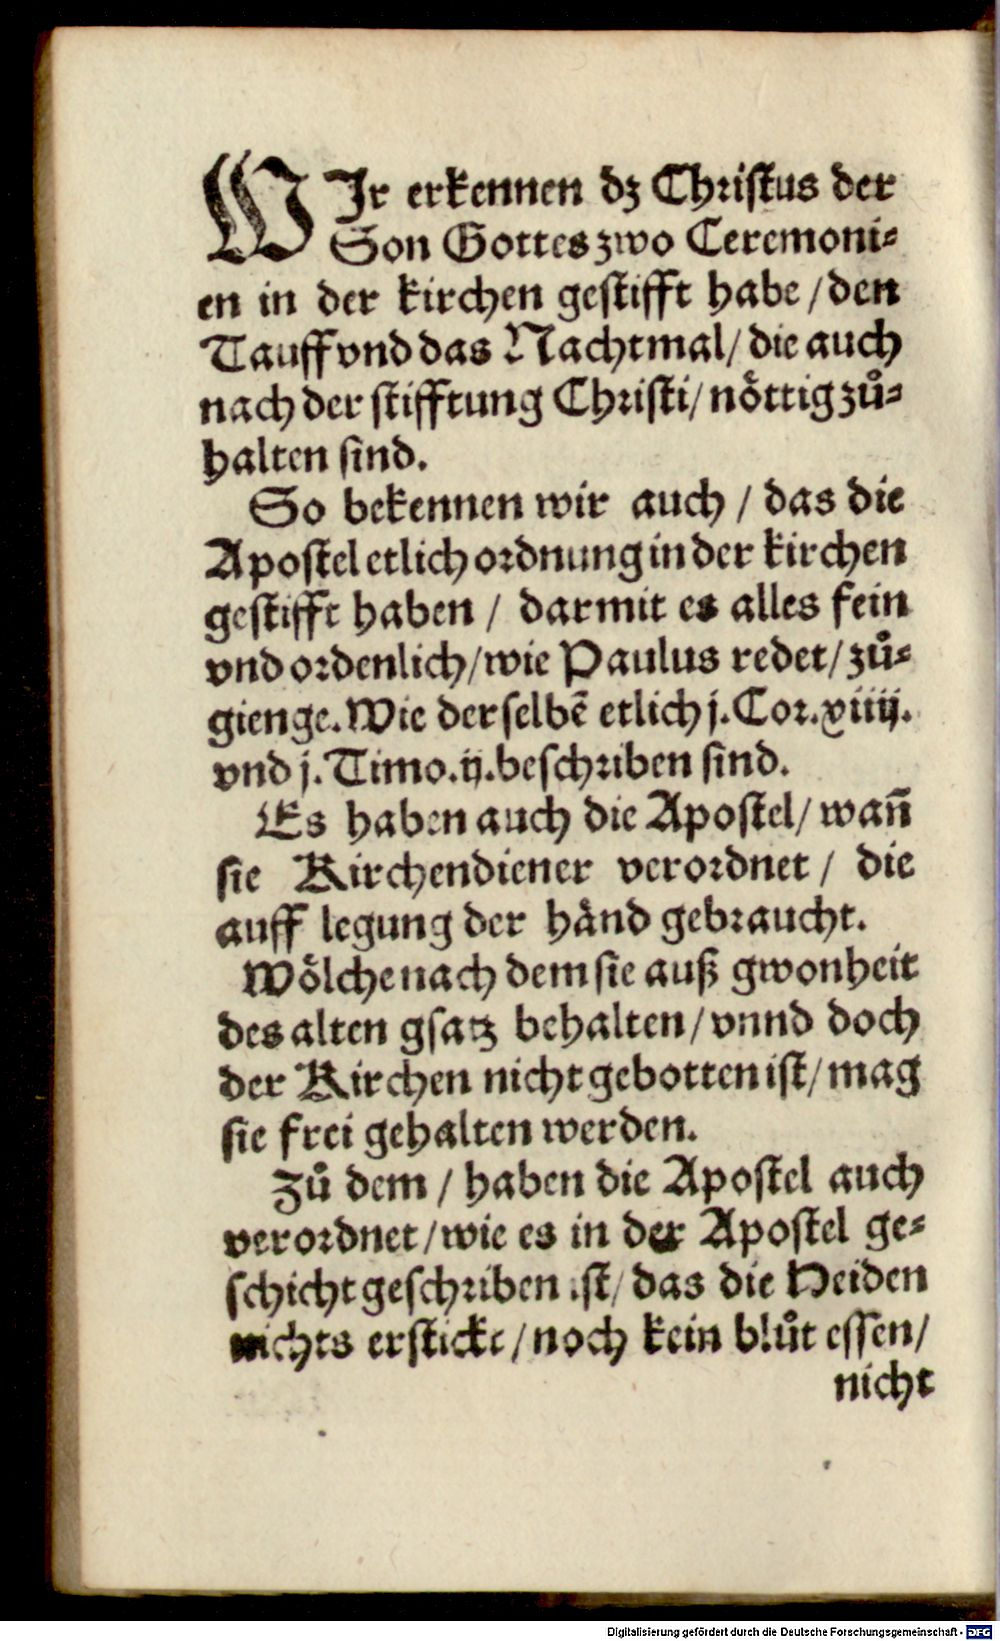 WIr erkennen dz Christus der
Son Gottes zwo Ceremoni⸗
en in der kirchen gestifft habe / den
Tauff vnd das Nachtmal / die auch
nach der stifftung Christi / nöttig zuͦ⸗
halten sind.
So bekennen wir auch / das die
Apostel etlich ordnung in der kirchen
gestifft haben / darmit es alles fein
vnd ordenlich / wie Paulus redet / zuͦ⸗
gienge. Wie derselbē etlich j. Cor. xiiij.
vnd j. Timo. ij. beschriben sind.
Es haben auch die Apostel / wañ
sie Kirchendiener verordnet / die
auff legung der händ gebraucht.
Wölche nach dem sie auß gwonheit
des alten gsatz behalten / vnnd doch
der Kirchen nicht gebotten ist / mag
sie frei gehalten werden.
Zuͦ dem / haben die Apostel auch
verordnet / wie es in der Apostel ge⸗
schicht geschriben ist / das die Heiden
nichts erstickt / noch kein bluͦt essen /
nicht
Digitalisierung gefördert durch die Deutsche Forschungsgemeinschaft - DFG